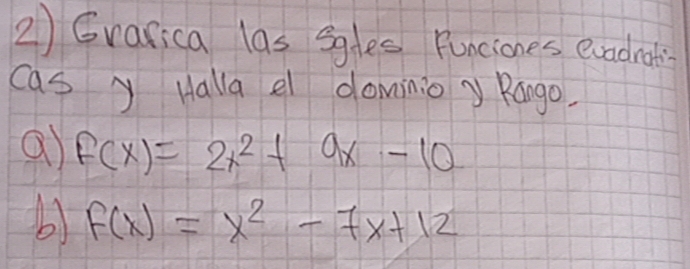 2) Grafica las sgtes Funciones cuadrati-
cas y Halla el dominio y Rango.
a) f(x) = 2x² + 9x - 10
b) f(x) = x² - 7x + 12